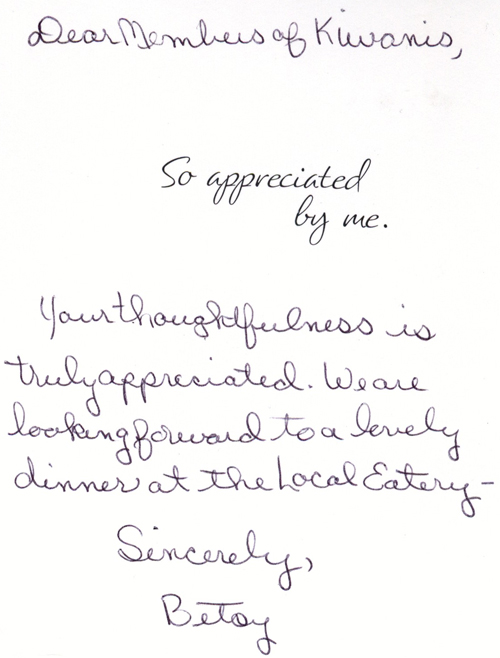 Dear Members of Kiwanis,
So appreciated
by me.
Your thoughtfulness is
truly appreciated. We are
looking forward to a lovely
dinner at the Local Eatery-
Sincerely,
Betsy